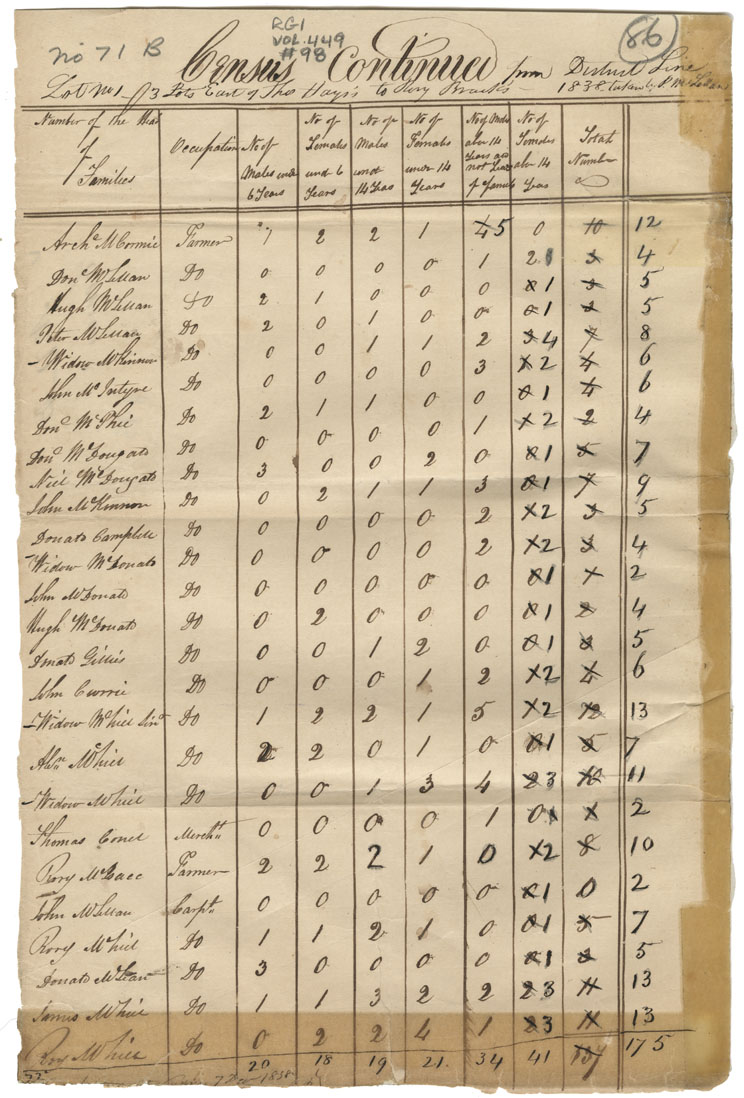 RG1
VOL.449
#98
86
no 71 B
Census Continued from District Line
Lot No 1 3 Lots East of Tho Hays's to Rory Bracks 1838 taken by
Number of the Head of Families | Occupation | No of Males under 6 Years | No of Females und 6 Years | No of Males und 14 Years | No of Females under 14 Years | No of Males abv 14 Years and not Head of family | No of Females abv 14 Years | Total Number
Archd McCormic Farmer 1 2 2 1 4 5 0 10 12
Dond McLellan Do 0 0 0 0 1 2 1 3 4
Hugh McLellan Do 2 1 0 0 0 0 1 3 5
Peter McLellan Do 2 0 1 0 0 0 1 3 5
Widow McKinnon Do 0 0 1 1 2 3 4 7 8
John McIntyre Do 0 0 0 0 3 X 2 4 6
Dond McPhie Do 2 1 1 0 0 0 1 4 6
Dond McDougald Do 0 0 0 0 1 X 2 2 4
Niel McDougald Do 3 0 0 2 0 0 1 5 7
John McKinnon Do 0 2 1 1 3 0 1 7 9
Donald Campbell Do 0 0 0 0 2 X 2 3 5
Widow McDonald Do 0 0 0 0 2 X 2 3 4
John McDonald Do 0 0 0 0 0 0 1 X 2
Hugh McDonald Do 0 2 0 0 0 0 1 2 4
Donald Gillis Do 0 0 1 2 0 0 1 3 5
John Currie Do 0 0 0 1 2 X 2 4 6
Widow McNiel Sinr Do 1 2 2 1 5 X 2 12 13
Alexr McNiel Do 2 2 0 1 0 0 1 5 7
Widow McNiel Do 0 0 1 3 4 2 3 10 11
Thomas Cond Mercht 0 0 0 0 1 0 1 X 2
Rory McIsacc Farmer 2 2 2 1 0 X 2 8 10
John McLellan Carptr 0 0 0 0 0 0 1 0 2
Rory McNiel Do 1 1 2 1 0 0 1 5 7
Donald McLean Do 3 0 0 0 0 0 1 3 5
James McNiel Do 1 1 3 2 2 2 3 11 13
Roy McNiel Do 0 2 2 4 1 2 3 11 13
22 20 18 19 21. 34 41 175
1838